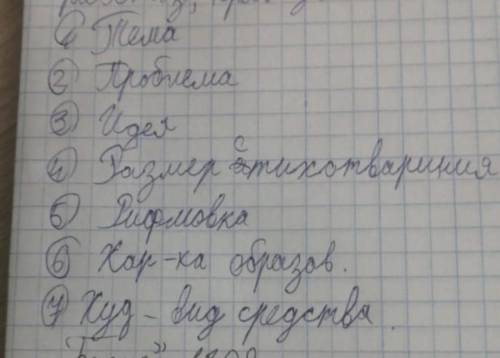 1 Тема
2 Проблема
3 Идея
4 Размер стихотвариния
5 Рифмовка
6 Хар-ка образов.
7 Худ - вид средства.